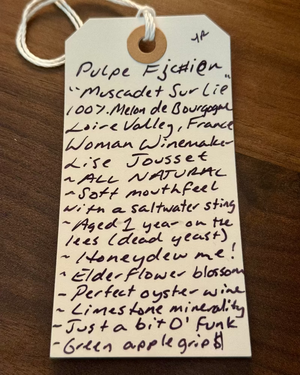 JR
Pulpe Fjc#i@n
"Muscadet Sur Lie"
100% Melon de Bourgogne
Loire Valley, France
Woman Winemaker
Lise Jousset
~ ALL NATURAL
~ Soft mouthfeel
with a saltwater sting
~ Aged 1 year on the
lees (dead yeast)
~ Honeydew me!
~ Elderflower blossom
- Perfect oyster wine
~ Limestone minerality
- Just a bit O' Funk
- Green apple grip$